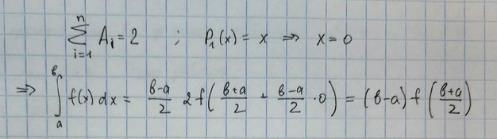 $\sum_{i=1}^{n} A_i = 2 \quad ; \quad P_1(x) = x \Rightarrow x = 0$
$\Rightarrow \int_a^b f(x)\,dx = \frac{b-a}{2} \, 2f\left(\frac{b+a}{2} + \frac{b-a}{2} \cdot 0\right) = (b-a) f\left(\frac{b+a}{2}\right)$